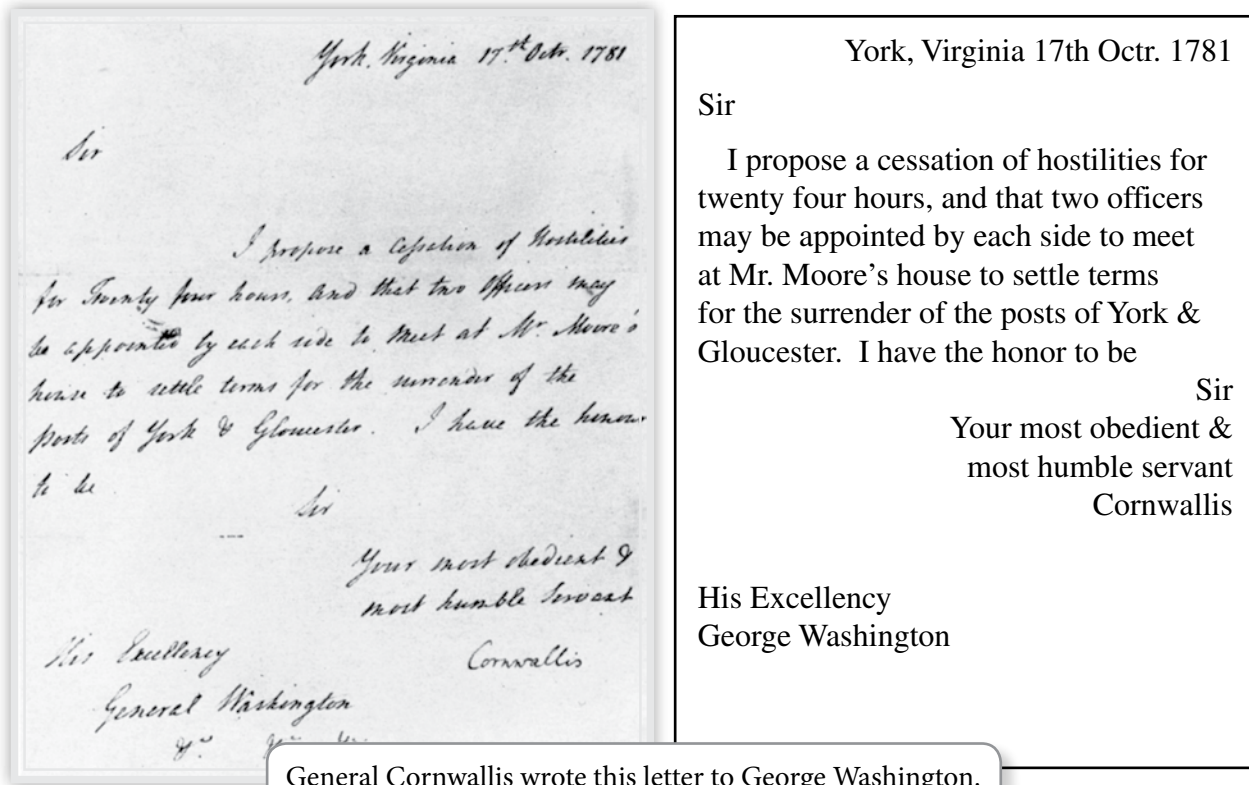 York, Virginia 17st Octr. 1781
Sir
I propose a Cessation of Hostilities
for Twenty four hours, and that two Officers may
be appointed by each side to meet at Mr. Moore's
house to settle terms for the surrender of the
posts of York & Gloucester. I have the honour
to be
Sir
Your most obedient &
most humble Servant
His Excellency
Cornwallis
General Washington
York, Virginia 17th Octr. 1781
Sir
I propose a cessation of hostilities for
twenty four hours, and that two officers
may be appointed by each side to meet
at Mr. Moore’s house to settle terms
for the surrender of the posts of York &
Gloucester. I have the honor to be
Sir
Your most obedient &
most humble servant
Cornwallis
His Excellency
George Washington
General Cornwallis wrote this letter to George Washington.